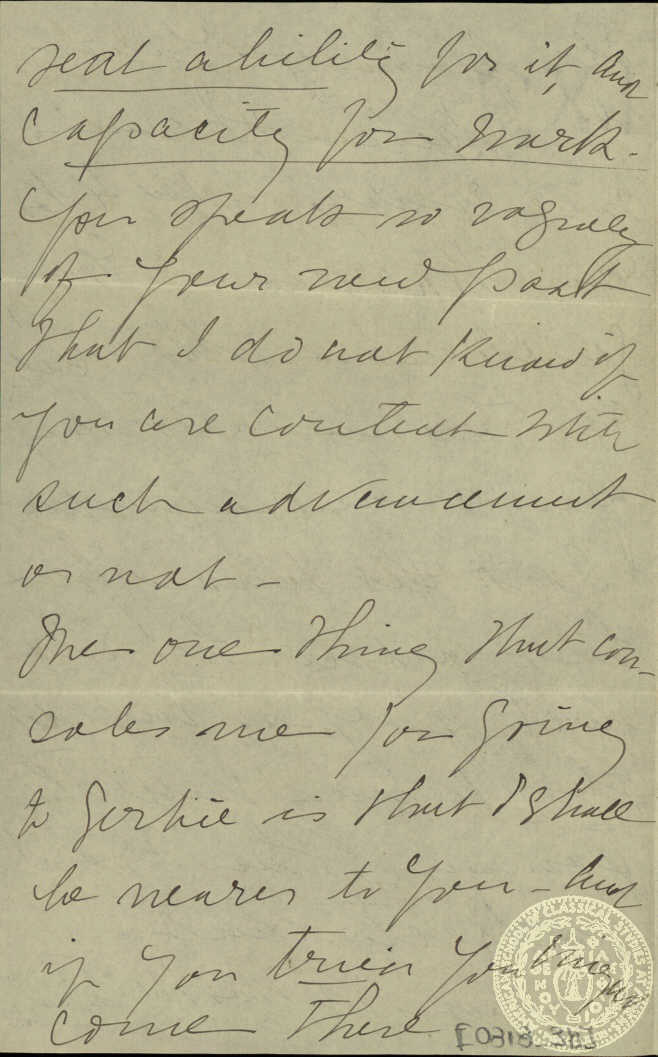 real ability for it, and
capacity for work.
You speak so vaguely
of your new post
that I do not know if
you are content with
such advancement
or not –
The one thing that con-
soles me for going
to Gertie is that I shall
be nearer to you – And
if you tried you
come there
AMERICAN SCHOOL OF CLASSICAL STUDIES AT